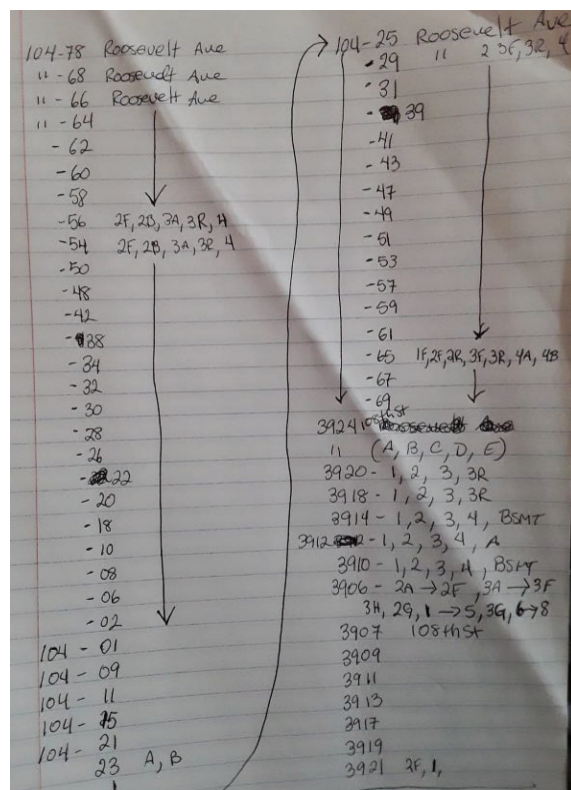 104-78 Roosevelt Ave
" -68 Roosevelt Ave
" -66 Roosevelt Ave
" -64
-62
-60
-58
-56 2F, 2B, 3A, 3R, 4
-54 2F, 2B, 3A, 3R, 4
-50
-48
-42
-38
-34
-32
-30
-28
-26
-22
-20
-18
-10
-08
-06
-02
104-01
104-09
104-11
104-15
104-21
23 A, B
104-25 Roosevelt Ave
-29 " 2 3F, 3R, 4
-31
-39
-41
-43
-47
-49
-51
-53
-57
-59
-61
-65 1F, 2F, 2R, 3F, 3R, 4A, 4B
-67
-69
3924 108th st
" (A, B, C, D, E)
3920 - 1, 2, 3, 3R
3918 - 1, 2, 3, 3R
3914 - 1, 2, 3, 4, BSMT
3912 - 1, 2, 3, 4, A
3910 - 1, 2, 3, 4, BSMT
3906 - 2A → 2F, 3A → 3F
3H, 2G, 1 → 5, 3G, 6 → 8
3907 108th St
3909
3911
3913
3917
3919
3921 2F, 1,